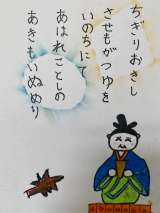 ちぎりおきし
させもがつゆを
いのちにて
あはれことしの
あきもいぬめり